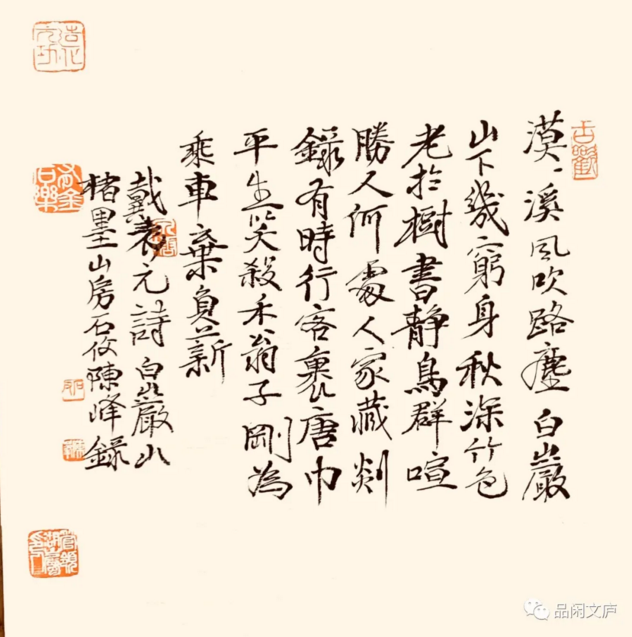 漠、溪風吹路塵白巖
山下幾窮身秋深竹色
老於樹書靜鳥群喧
勝人何處人家藏剡
錄有時行客裹唐巾
平生笑殺禾翁子剛為
乘車棄負薪
戴表元詩白巖山
楮墨山房石攸陳峰錄
品闲文庐